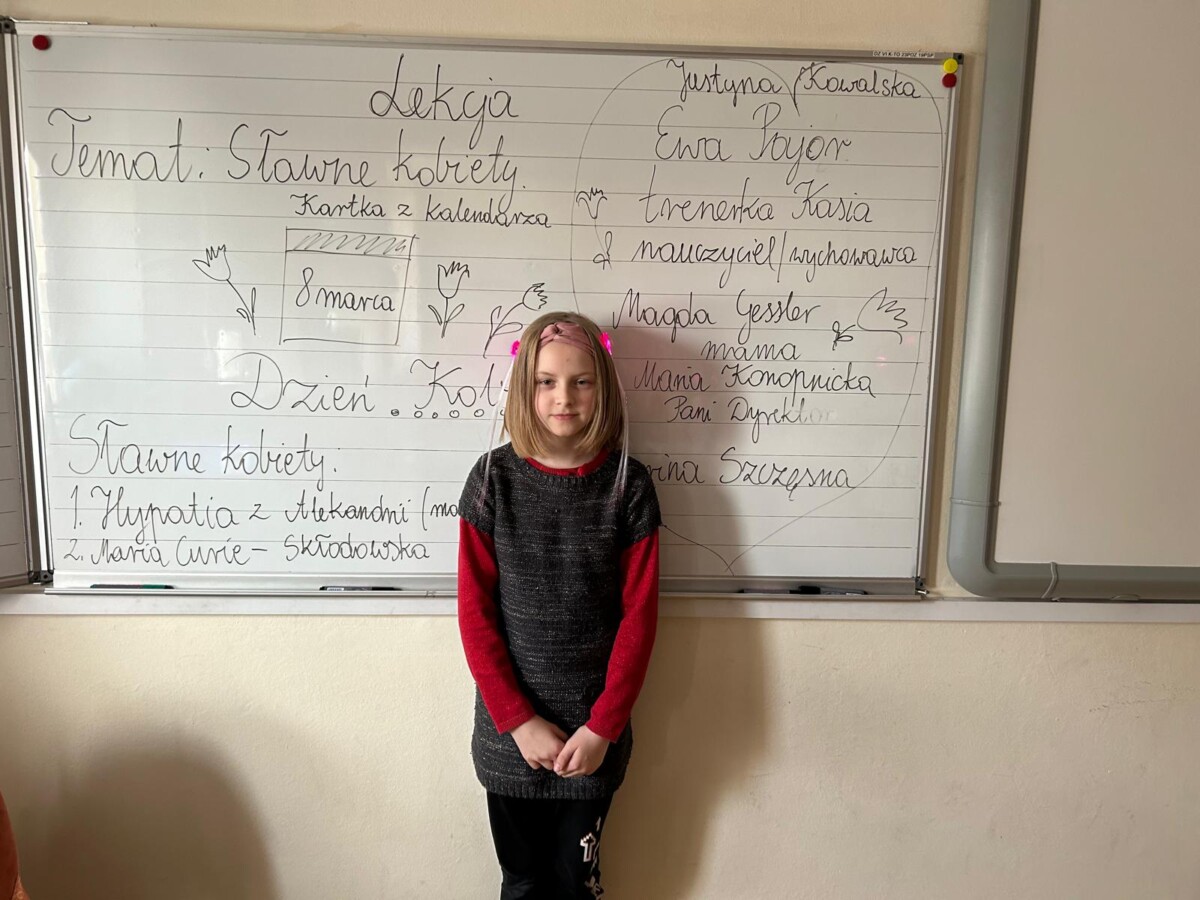 Lekcja
Temat: Sławne kobiety.
Kartka z kalendarza
8 marca
Dzień Kob
Sławne kobiety:
1. Hypatia z Aleksandrii (ma
2. Maria Curie - Skłodowska
Justyna Kowalska
Ewa Pajor
trenerka Kasia
nauczyciel/wychowawca
Magda Gessler
mama
Maria Konopnicka
Pani Dyrektor
Szczęsna